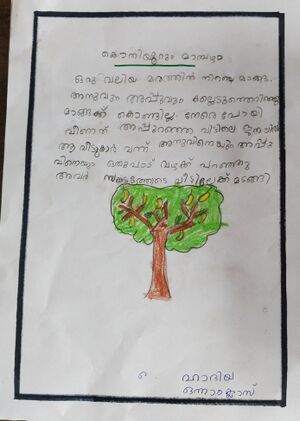 കൊതിയൂറും മാമ്പഴം
ഒരു വലിയ മരത്തിൽ നിറയെ മാങ്ങ.
അനുവും അപ്പുവും കല്ലെടുത്തെറിഞ്ഞു
മാങ്ങക്ക് കൊണ്ടില്ല. നേരെ പോയി
വീണത് അപ്പുറത്തെ വീട്ടിലെ
ആ വീട്ടുകാർ വന്ന് അനുവിനെയും അപ്പു
വിനെയും ഒരുപാട് വഴക്ക് പറഞ്ഞു
അവർ സങ്കടത്തോടെ വീട്ടിലേക്ക് മടങ്ങി
ഹാദിയ
ഒന്നാംക്ലാസ്